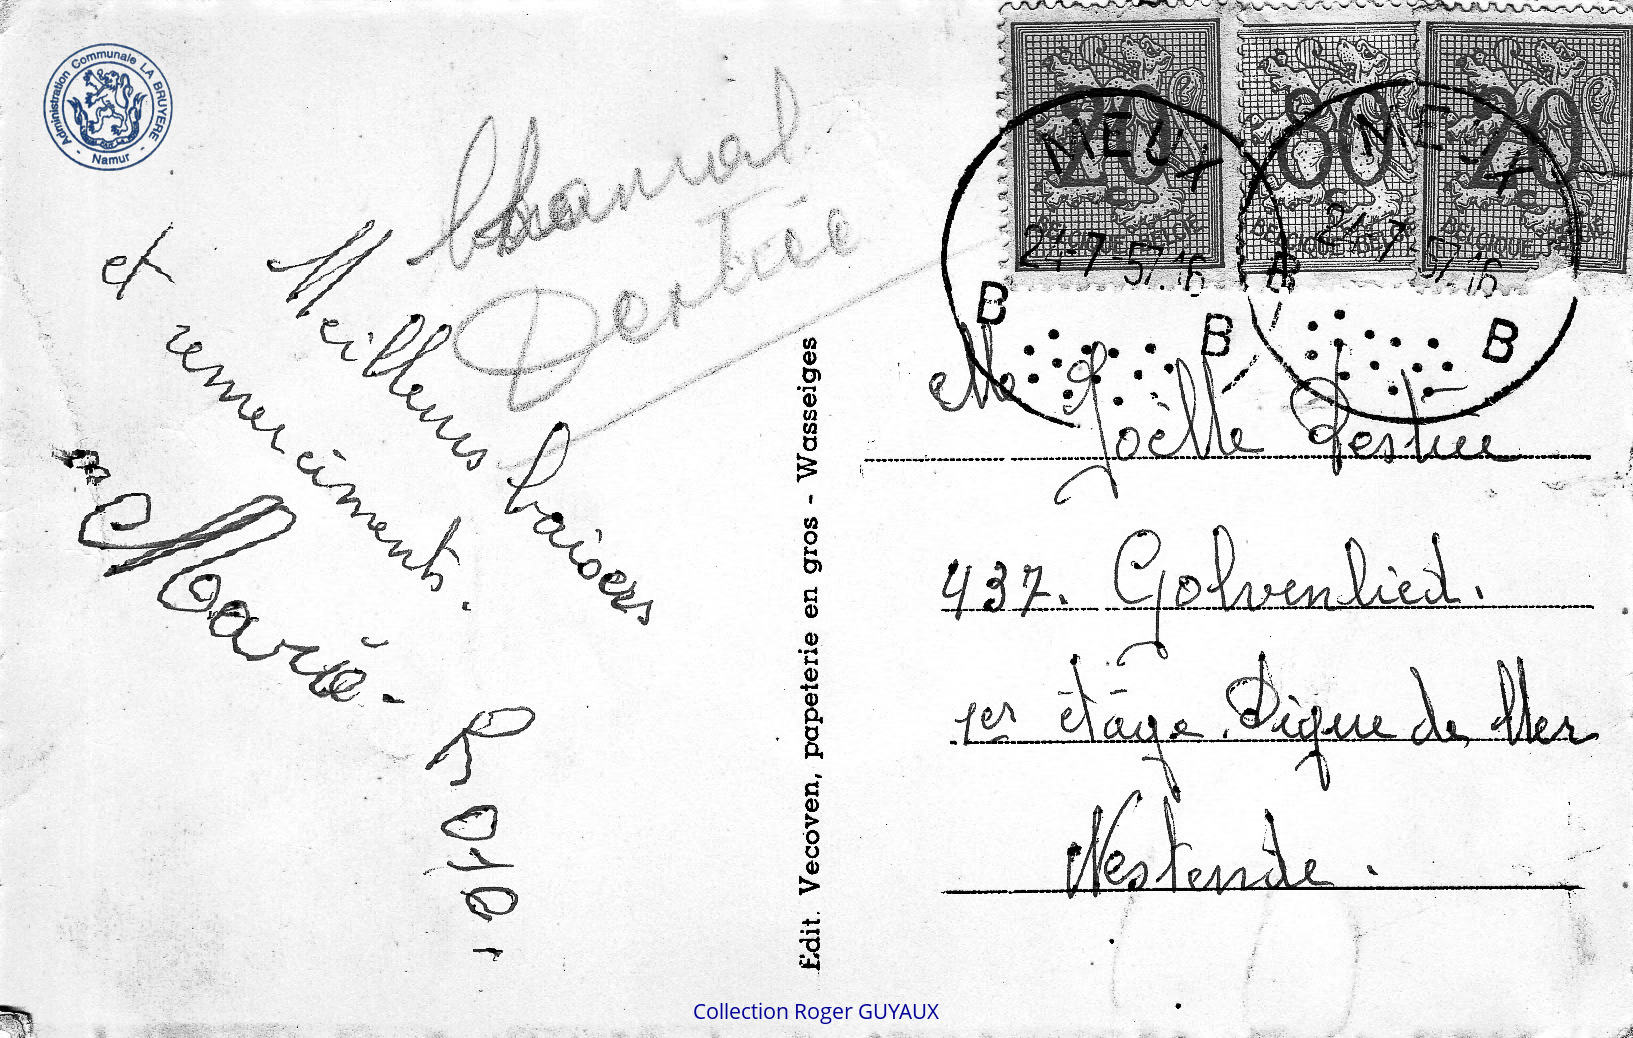 Administration Communale LA BRUYERE
- Namur -
Meilleurs baisers
et remerciments.
Marie.
Édit. Vecoven, papeterie en gros - Wasseiges
20 c
BELGIQUE BELGIE
80 c
BELGIQUE BELGIE
20 c
BELGIQUE
MEUX
21-7-57.16
B B
MEUX
21-7 57.16
B B
Melle Joëlle
437. Golvenlied.
1er étage. Digue de Mer
Westende.
Collection Roger GUYAUX